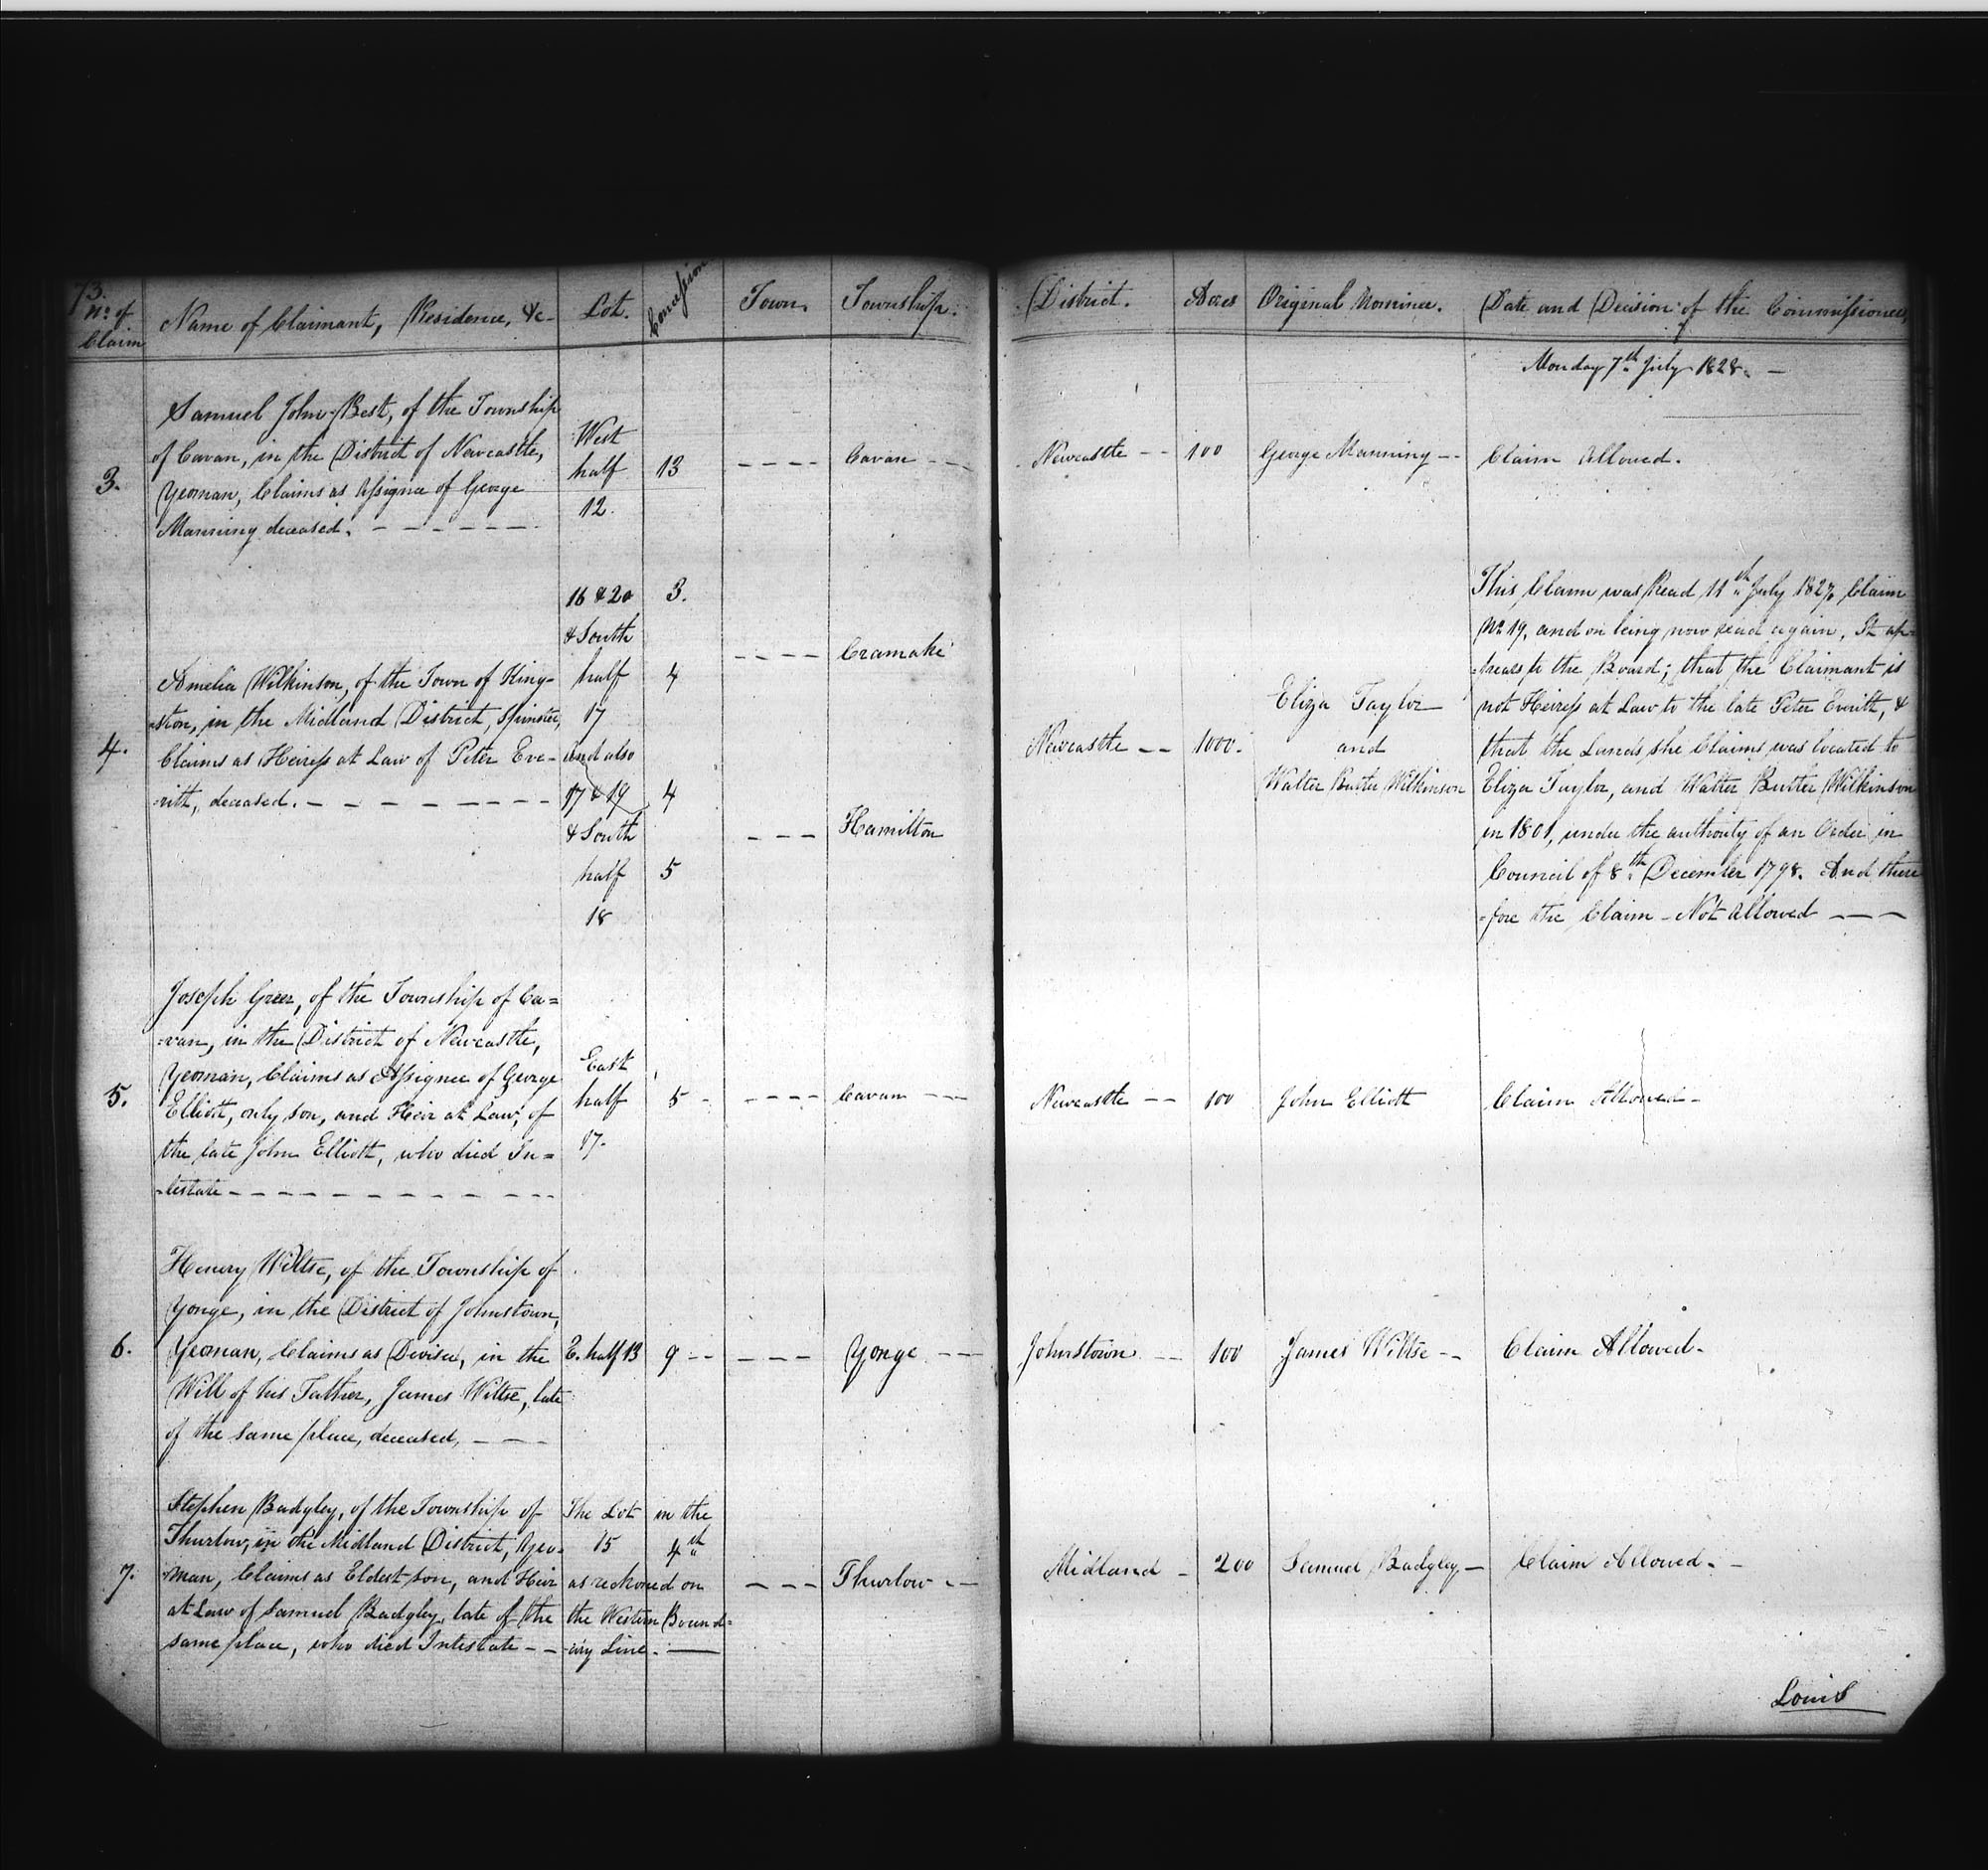 73.
No. of Claim
Name of Claimant, Residence, &c
Lot.
Concession
Town.
Township.
District.
Acres
Original Nominee.
Date and Decision of the Commissioners,
Monday 7th July 1828. —
3.
Samuel John Best, of the Township
of Cavan, in the District of Newcastle,
Yeoman, Claims as Assignee of George
Manning deceased. — — — — — —
West
half
12.
13
— — — —
Cavan — —
Newcastle — —
100
George Manning —
Claim Allowed.
4.
Amelia Wilkinson, of the Town of King-
-ston, in the Midland District, Spinster,
Claims as Heiress at Law of Peter Eve-
-rith, deceased. — — — — — — —
16 & 20
& South
half
17
and also
17 & 19
& South
half
18
3.
4
4
5
— — — —
Cramahe
— — —
Hamilton
Newcastle — —
1000.
Eliza Taylor
and
Walter Butler Wilkinson
This Claim was Read 11th July 1827, Claim
No. 19, and on being now read again, It ap-
-pears to the Board; that the Claimant is
not Heiress at Law to the late Peter Everith, &
that the Lands she Claims was located to
Eliza Taylor, and Walter Butler Wilkinson
in 1801, under the authority of an Order in
Council of 8th December 1798. And there
-fore the Claim - Not Allowed — — —
5.
Joseph Greer, of the Township of Ca=
-van, in the District of Newcastle,
Yeoman, Claims as Assignee of George
Elliott, only son, and Heir at Law, of
the late John Elliott, who died In=
-testate — — — — — — — — —
East
half
17.
5 -
— — — —
Cavan — —
Newcastle — —
100
John Elliott
Claim Allowed —
6.
Henry Wiltse, of the Township of
Yonge, in the District of Johnstown,
Yeoman, Claims as Devisee, in the
Will of his Father, James Wiltse, late
of the same place, deceased, — — —
E. half 13
9 — —
— — —
Yonge — —
Johnstown — —
100
James Wiltse — —
Claim Allowed —
7.
Stephen Badgley, of the Township of
Thurlow, in the Midland District, Yeo-
-man, Claims as Eldest son, and Heir
at Law of Samuel Badgley, late of the
same place, who died Intestate — —
The Lot in the
15 4th
as reckoned on
the Western Bound-
-ary Line. —
— — —
Thurlow — —
Midland —
200
Samuel Badgley —
Claim Allowed. —
Louis